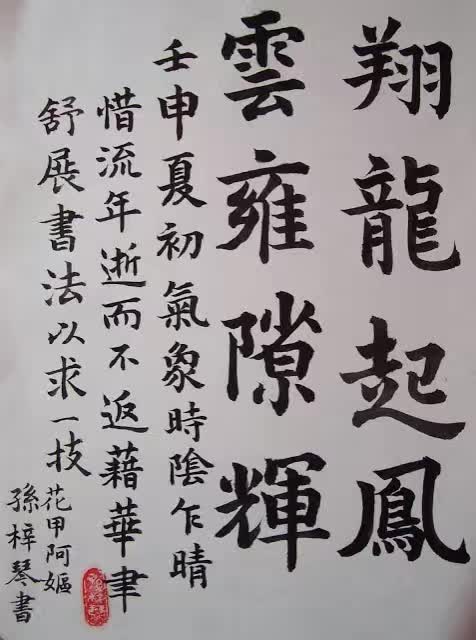 翔龍起鳳
雲雍隙輝
壬申夏初氣象時陰乍晴
惜流年逝而不返藉華聿
舒展書法以求一技
花甲阿嫗
孫梓琴書